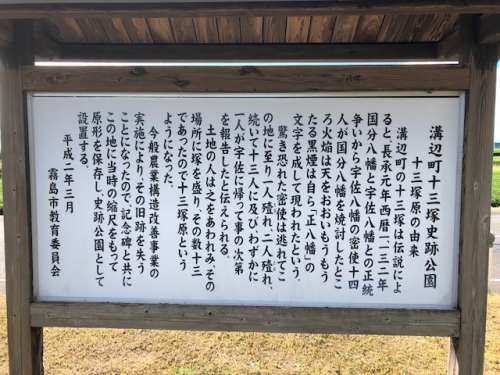 溝辺町十三塚史跡公園
十三塚原の由来
溝辺町の十三塚は伝説によ
ると、長承元年西暦一一三二年
国分八幡と宇佐八幡との正統
争いから宇佐八幡の密使十四
人が国分八幡を焼討したとこ
ろ火焔は天をおおいもうもう
たる黒煙は自ら「正八幡」の
文字を成して現われたという。
驚き恐れた密使は逃れてこ
の地に至り一人殪れ、二人殪れ、
続いて十三人に及びわずかに
一人が宇佐に帰って事の次第
を報告したと伝えられる。
土地の人は之をあわれみ、その
場所に塚を盛り、その数十三
であったので十三塚原という
ようになった。
今般農業構造改善事業の
実施により、その旧跡を失う
ことになったので、記念碑と共に
この地に当時の縮尺をもって
原形を保存し、史跡公園として
設置する。
平成二年三月
霧島市教育委員会